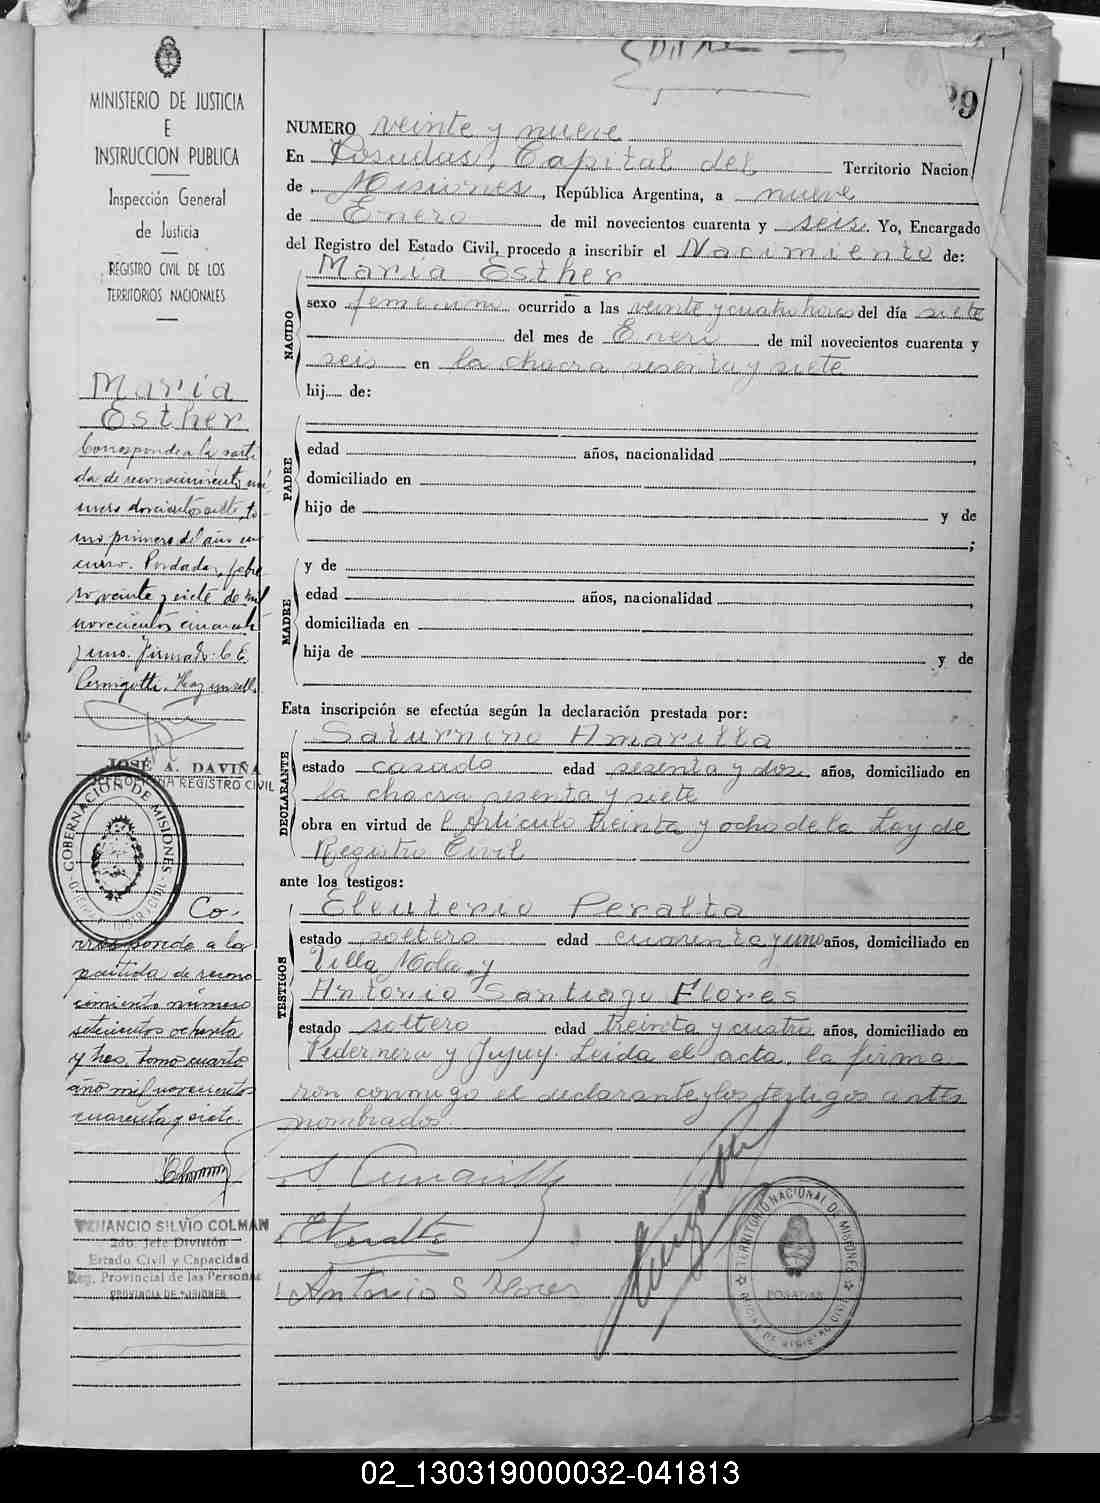 29
MINISTERIO DE JUSTICIA
E
INSTRUCCION PUBLICA
Inspección General
de Justicia
REGISTRO CIVIL DE LOS
TERRITORIOS NACIONALES
María
Esther
Corresponde a la parti
da de reconocimiento nú
mero doscientos siete, to
mo primero del año en
curso. Posadas, febre
ro veinte y siete de mil
novecientos cincuenta
y uno. Firmado: C. E.
Cernigotti. Hay un sello.
JOSÉ A. DAVIÑA
REGISTRO CIVIL
GOBERNACIÓN DE MISIONES
Co-
rresponde a la
partida de recono-
cimiento número
setecientos ochenta
y tres, tomo cuarto
año mil novecientos
cuarenta y siete
VENANCIO SILVIO COLMAN
2do. Jefe División
Estado Civil y Capacidad
Reg. Provincial de las Personas
PROVINCIA DE MISIONES
NUMERO veinte y nueve
En Posadas, Capital del Territorio Nacion
de Misiones, República Argentina, a nueve
de Enero de mil novecientos cuarenta y seis. Yo, Encargado
del Registro del Estado Civil, procedo a inscribir el Nacimiento de:
NACIDO
María Esther
sexo femenino ocurrido a las veinte y cuatro horas del día siete
del mes de Enero de mil novecientos cuarenta y
seis en la chacra sesenta y siete
hij..... de:
PADRE
edad años, nacionalidad ,
domiciliado en
hijo de y de
;
MADRE
y de
edad años, nacionalidad ,
domiciliada en
hija de y de
Esta inscripción se efectúa según la declaración prestada por:
DECLARANTE
Saturnino Amarilla
estado casado edad sesenta y dos años, domiciliado en
la chacra sesenta y siete
obra en virtud de l Artículo treinta y ocho de la Ley de
Registro Civil
ante los testigos:
TESTIGOS
Eleuterio Peralta
estado soltero edad cuarenta y uno años, domiciliado en
Villa Mola, y
Antonio Santiago Flores
estado soltero edad treinta y cuatro años, domiciliado en
Pedernera y Jujuy. Leida el acta, la firma
ron conmigo el declarante y los testigos antes
nombrados.
S. Amarilla
E Peralta
Antonio S Flores
TERRITORIO NACIONAL DE MISIONES
POSADAS
02_130319000032-041813